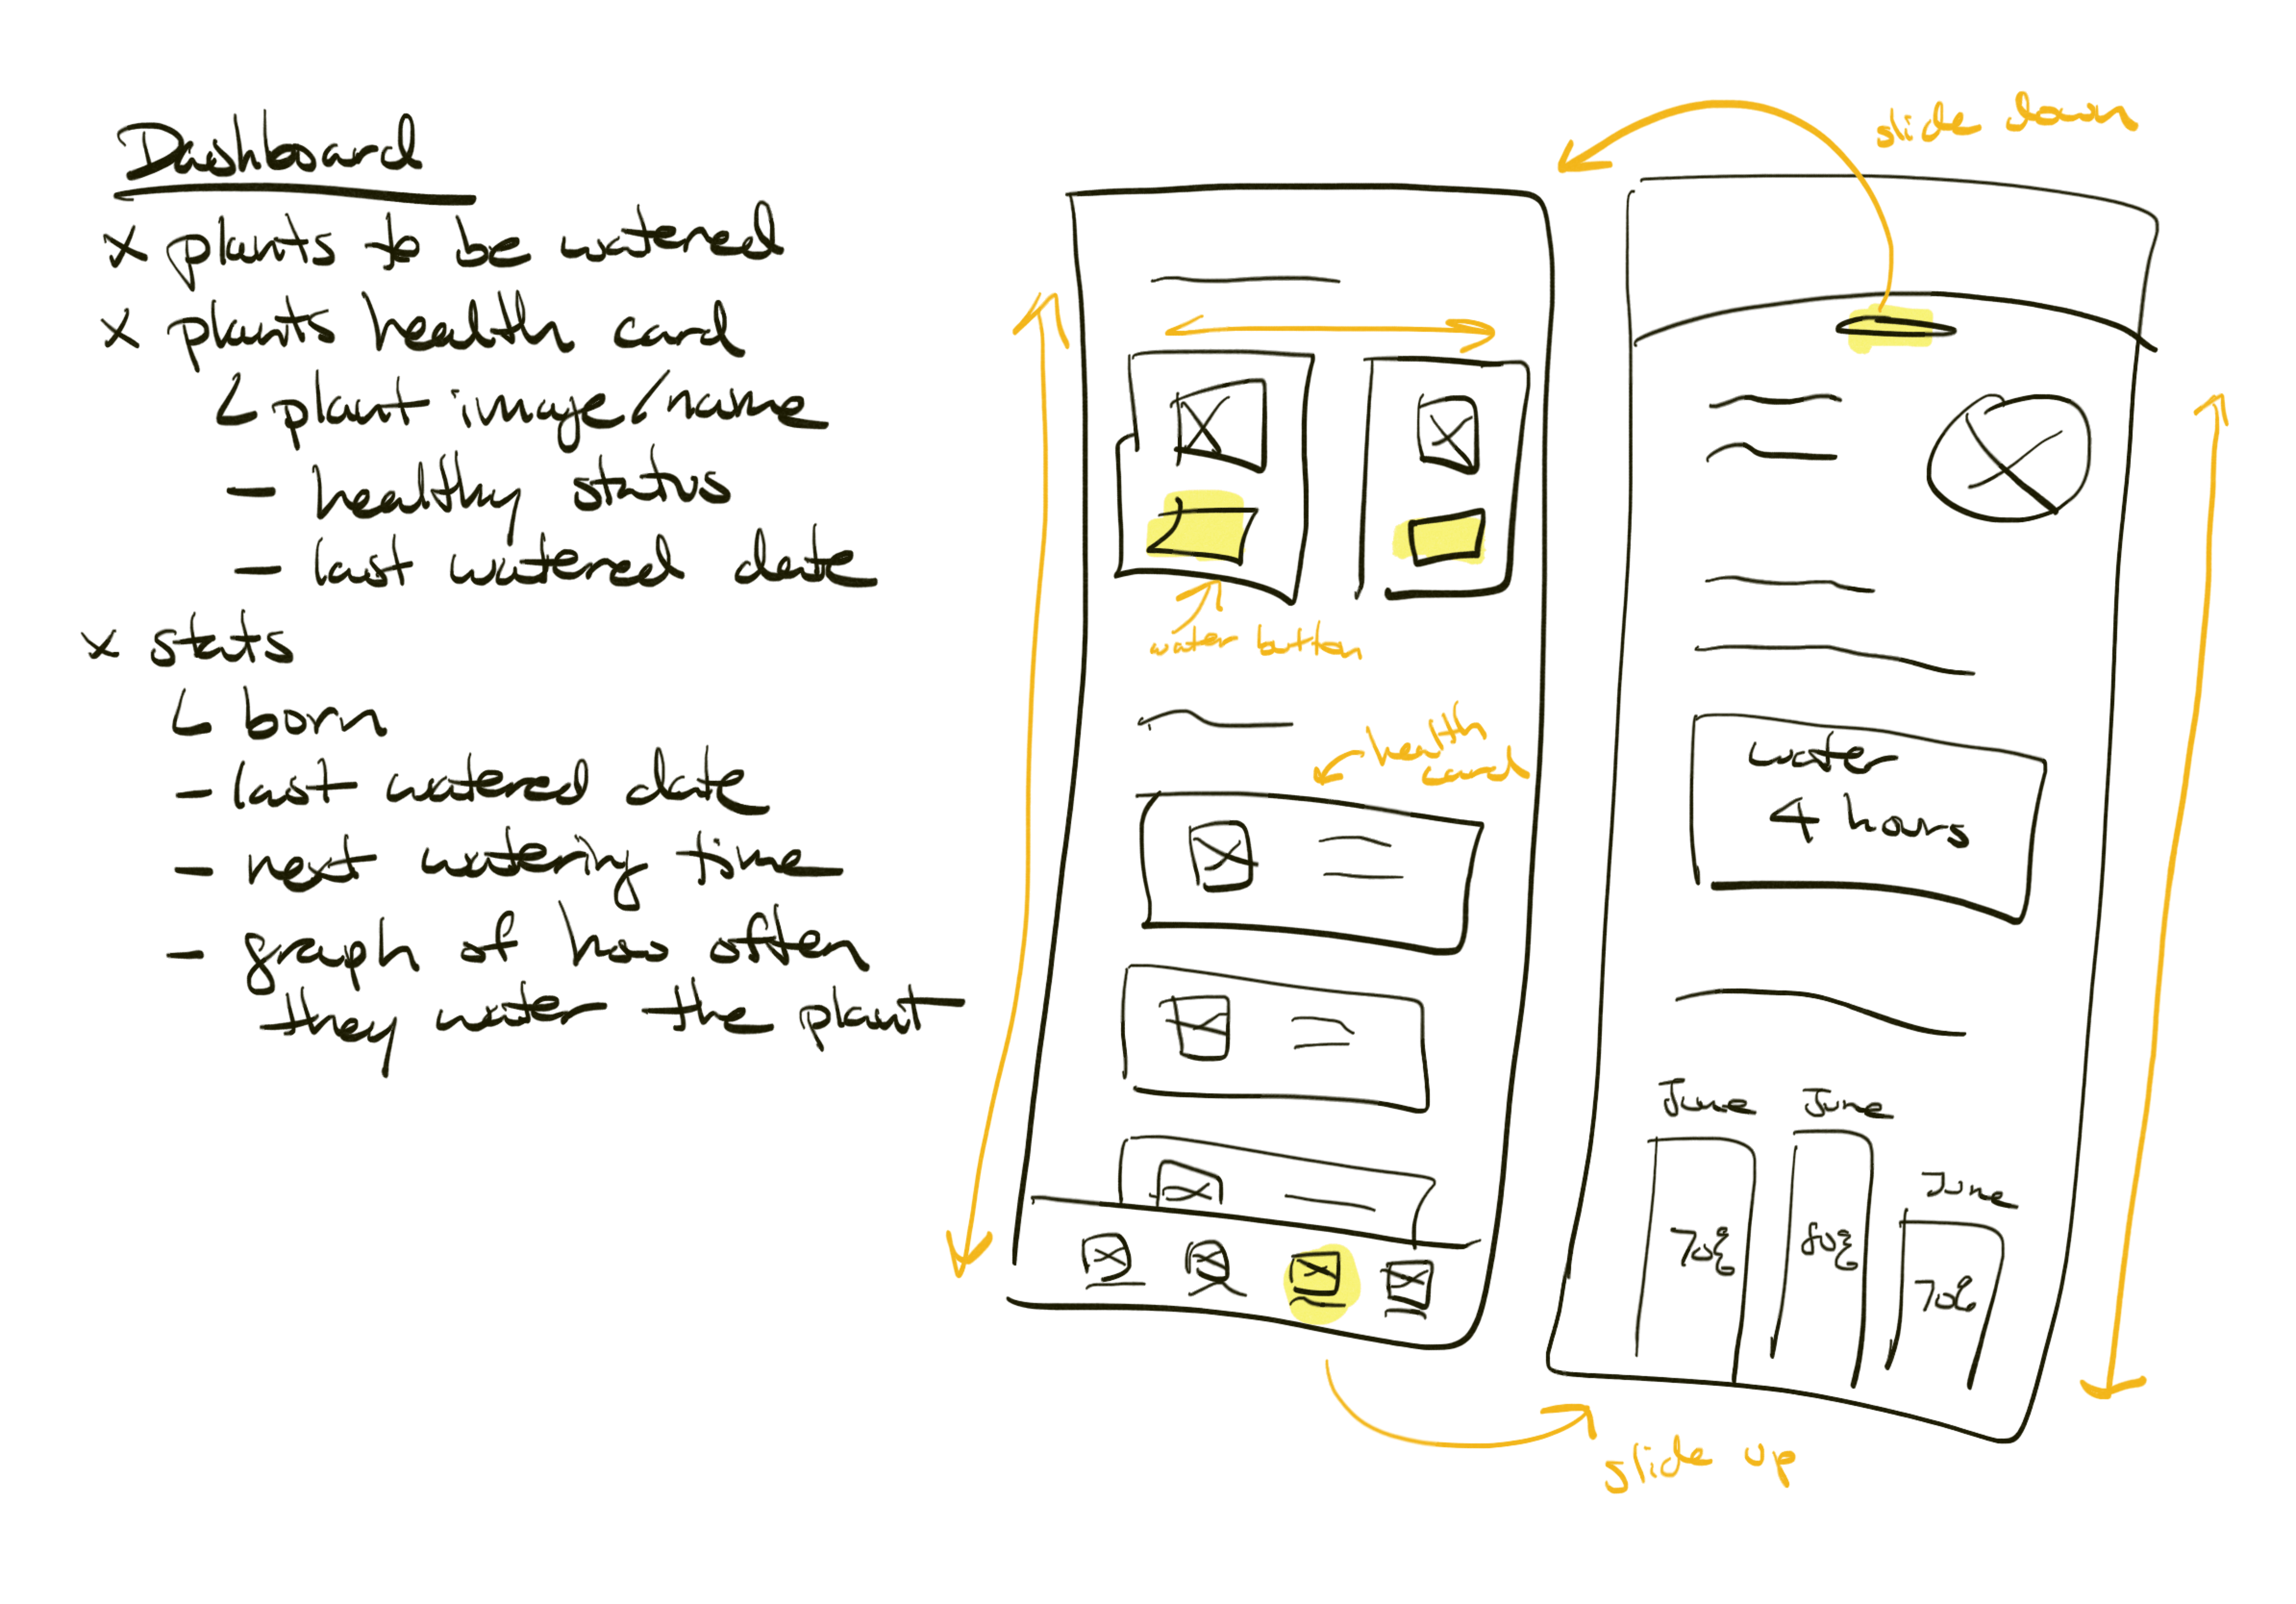 Dashboard
x plants to be watered
x plants health card
plant image/name
- healthy status
- last watered date
x stats
born
- last watered date
- next watering time
- graph of how often
they water the plant
slide down
water button
health
card
water
4 hours
June June
June
70%
80%
70%
slide up